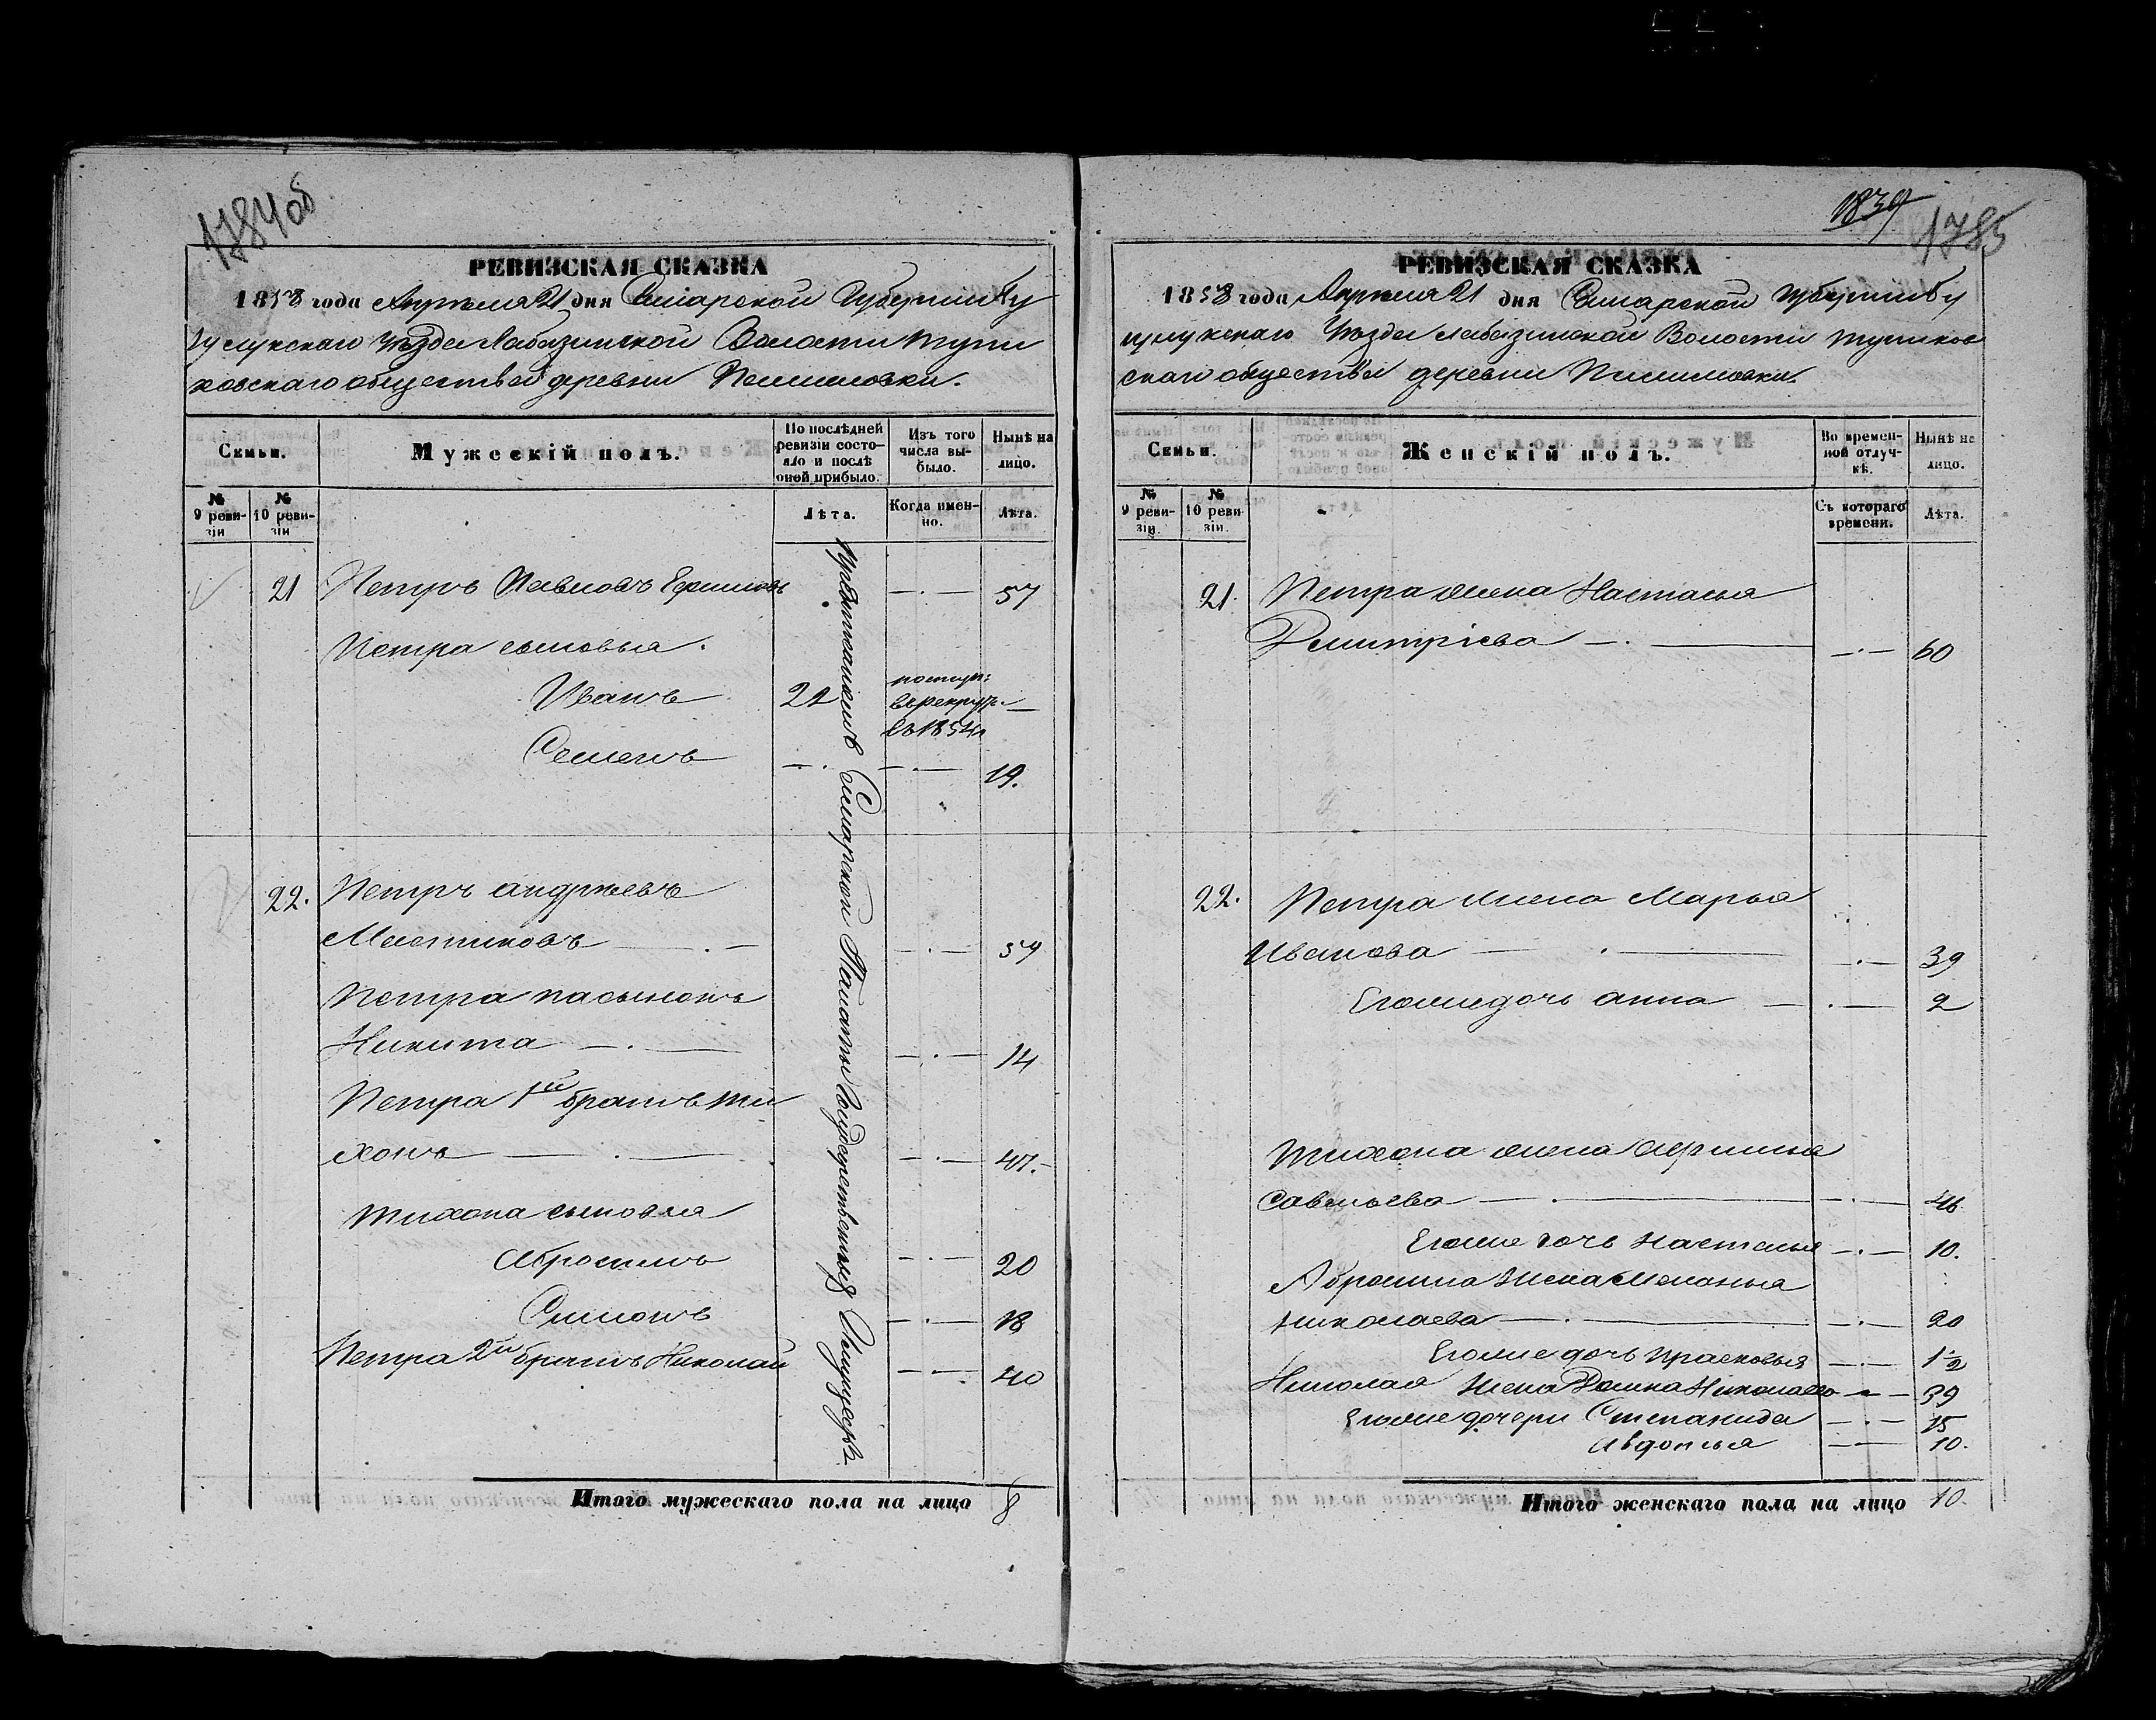 1784об
РЕВИЗСКАЯ СКАЗКА
1858 года Апрѣля 21 дня Самарской Губерніи Бу
зулукскаго Уѣзда Лабазинской Волости Тупи
ковскаго общества деревни
Семьи.
Мужескій полъ.
По послѣдней ревизіи состояло и послѣ оной прибыло.
Изъ того числа выбыло.
Нынѣ на лицо.
№ 9 ревизіи
№ 10 ревизіи
Лѣта.
Когда именно.
Лѣта.
21 Петръ Павловъ Ефимовъ — . — 57
Петра сыновья.
Иванъ 21 поступ: въ рекруты въ 1854 —
Семенъ — . — . — 19.
22. Петръ Андреевъ
— . — — . — 59
Петра пасынокъ
Никита — . — — . — 14
Петра 1й братъ Ти
хонъ — . — — . — 47.
Тихона сыновья
Абросимъ — . — 20
Симонъ — . — 18
Петра 2й братъ Николай — . — 40
Самарской Палаты Государственныхъ Имуществъ
Итого мужескаго пола на лицо 8
1839
1785
РЕВИЗСКАЯ СКАЗКА
1858 года Апрѣля 21 дня Самарской Губерніи Бу
зулукскаго Уѣзда Лабазинской Волости Тупиков
скаго общества деревни
Семьи.
Женскій полъ.
Во временной отлучкѣ.
Нынѣ на лицо.
№ 9 ревизіи.
№ 10 ревизіи.
Съ котораго времени.
Лѣта.
21. Петра жена Настасья
Дмитріева — . — — . — 60
22. Петра жена Марья
Иванова — . — — . — 39
Его же дочь Анна — . — 2
Тихона жена Афимья
Савельева — . — — . — 46
Его же дочь Настасья — . — 10.
Абросима жена Меланья
Николаева — . — — . — 20
Его же дочь Прасковья — . — 1½
Николая жена Домна Николаева — 39
Его же дочери Степанида — . — 15
Авдотья — — 10.
Итого женскаго пола на лицо 10.